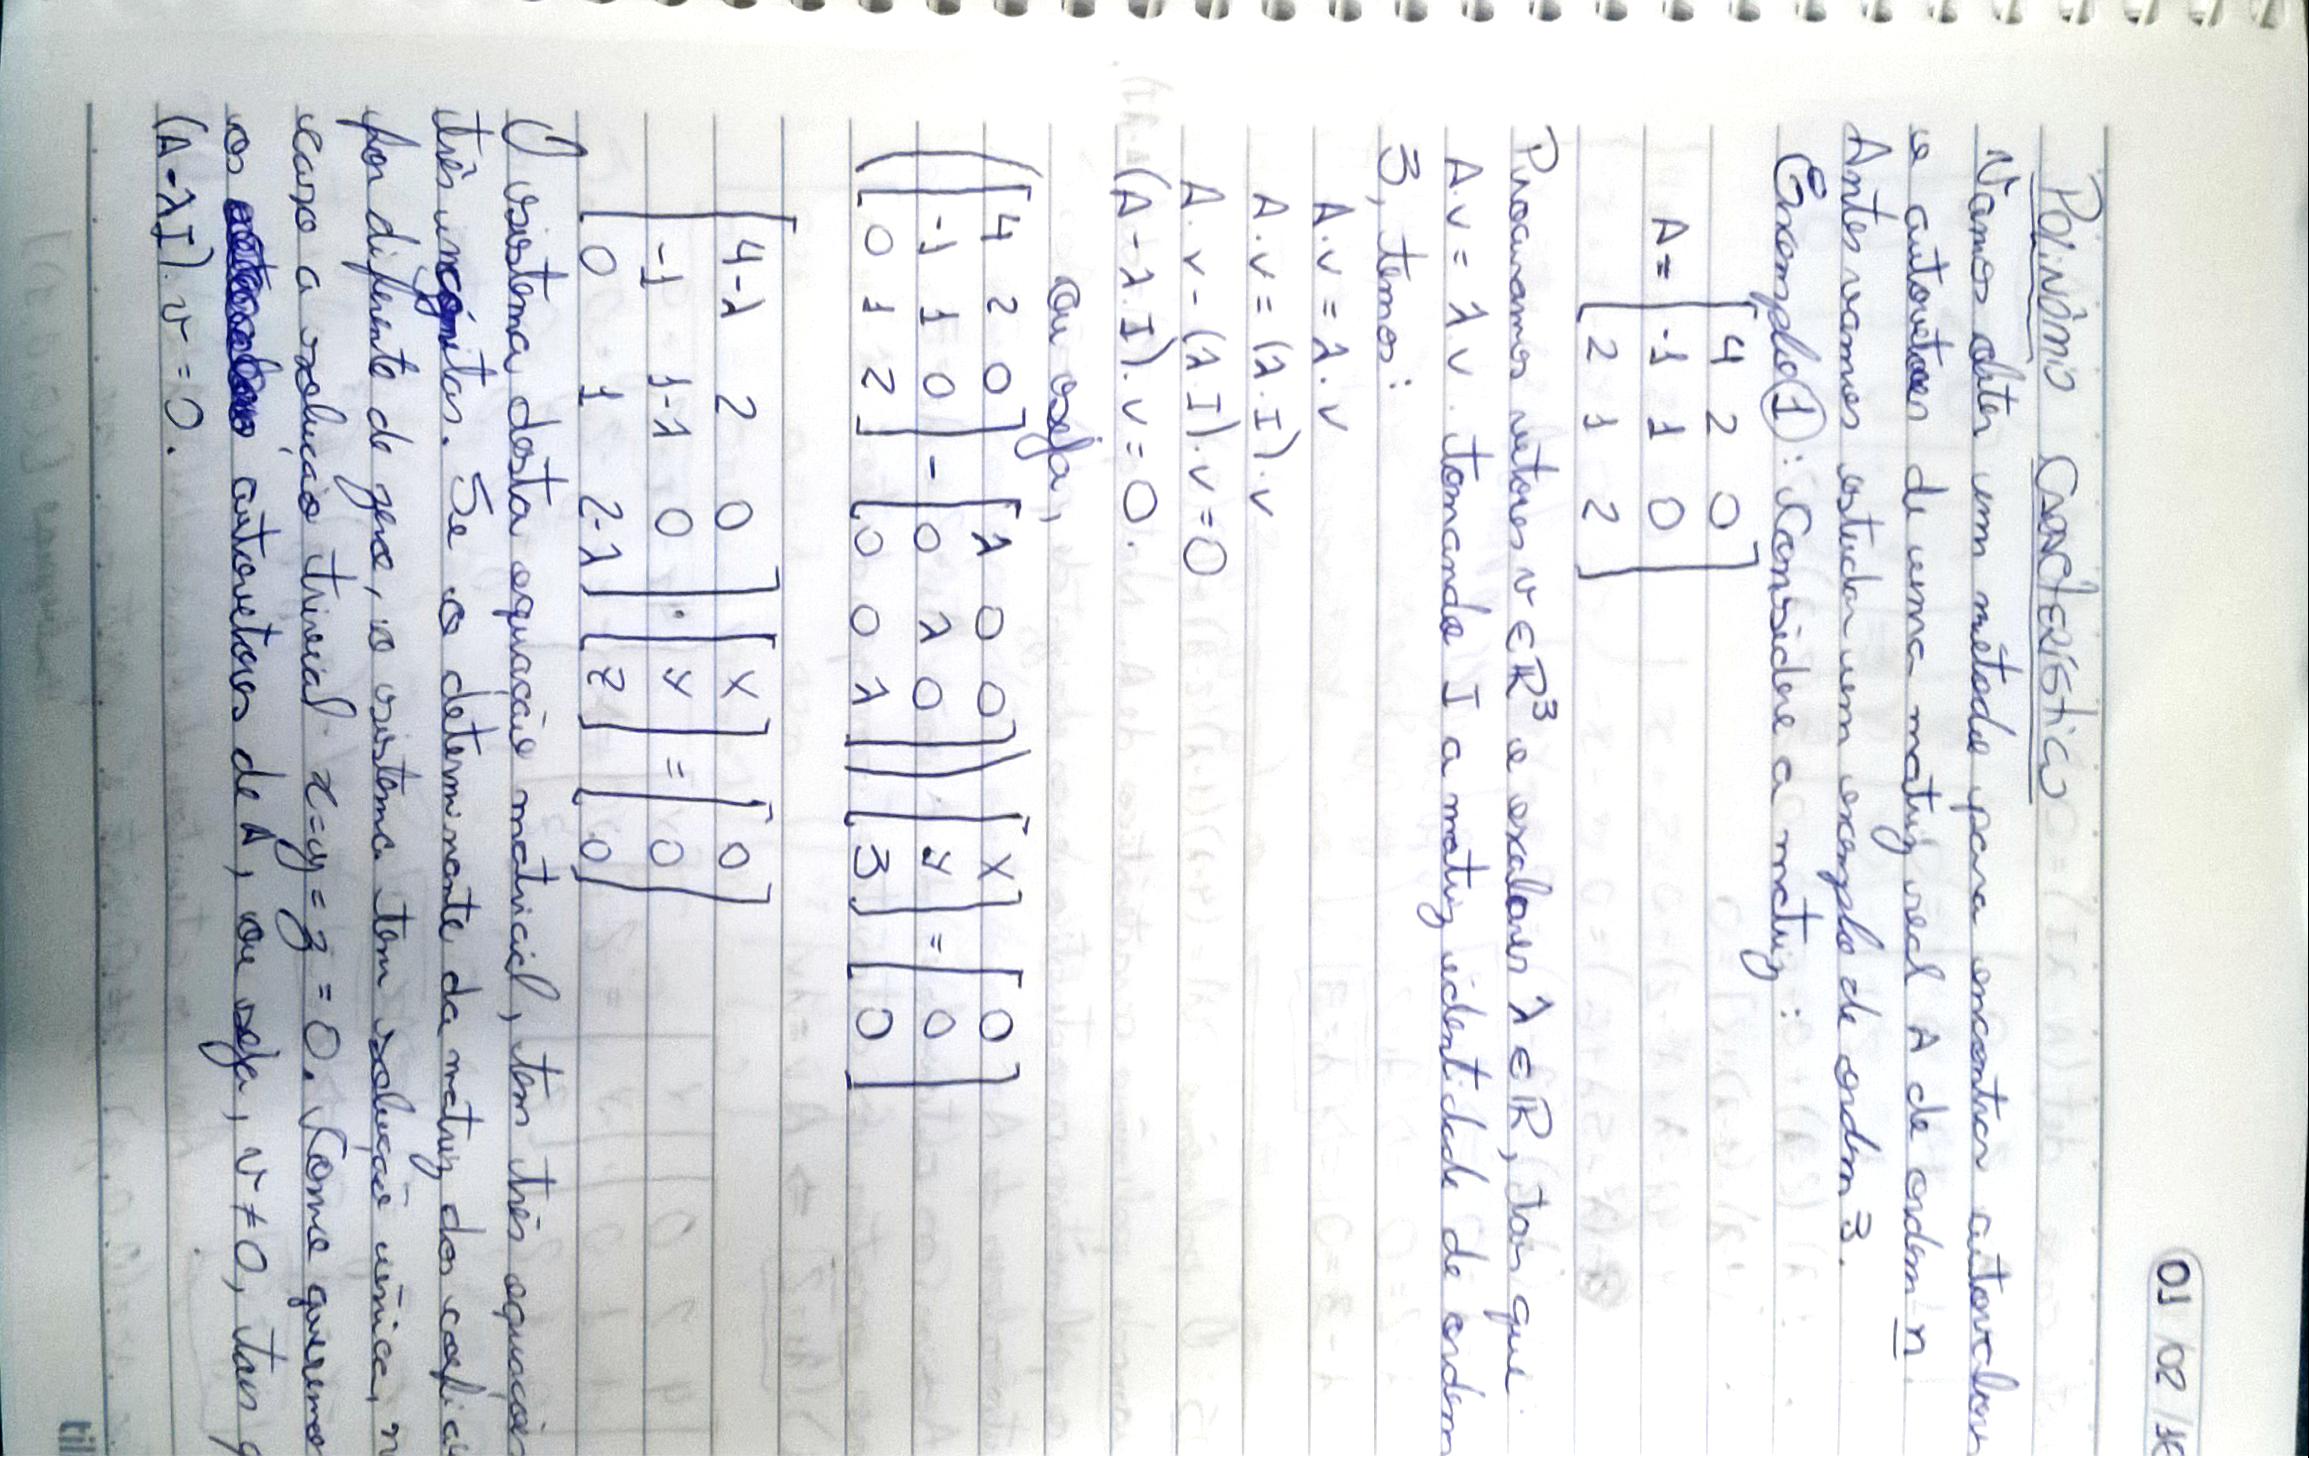 01/02/16
Polinômio Característico
Vamos obter um método para encontrar autovalores
e autovetores de uma matriz real A de ordem n
Antes vamos estudar um exemplo de ordem 3.
Exemplo 1: Considere a matriz:
4 2 0
A = -1 1 0
2 1 2
Procuramos vetores v ∈ R³ e escalares λ ∈ R, tais que
A.v = λ.v. tomando I a matriz identidade de ordem
3, temos:
A.v = λ.v
A.v = (λ.I).v
A.v - (λ.I).v = 0
(A - λ.I).v = 0.
ou seja,
([4 2 0] - [λ 0 0]) . [x] = [0]
([-1 1 0] - [0 λ 0]) . [y] = [0]
([0 1 2] - [0 0 λ]) . [z] = [0]
[4-λ 2 0] . [x] = [0]
[-1 1-λ 0] . [y] = [0]
[0 1 2-λ] . [z] = [0]
O sistema desta equação matricial, tem três equações
três incógnitas. Se o determinante da matriz dos
for diferente de zero, o sistema tem solução única, n
caso a solução trivial x=y=z=0. Como queremos
os autovetores de A, ou seja, v ≠ 0, tais q
(A-λI).v = 0.
til